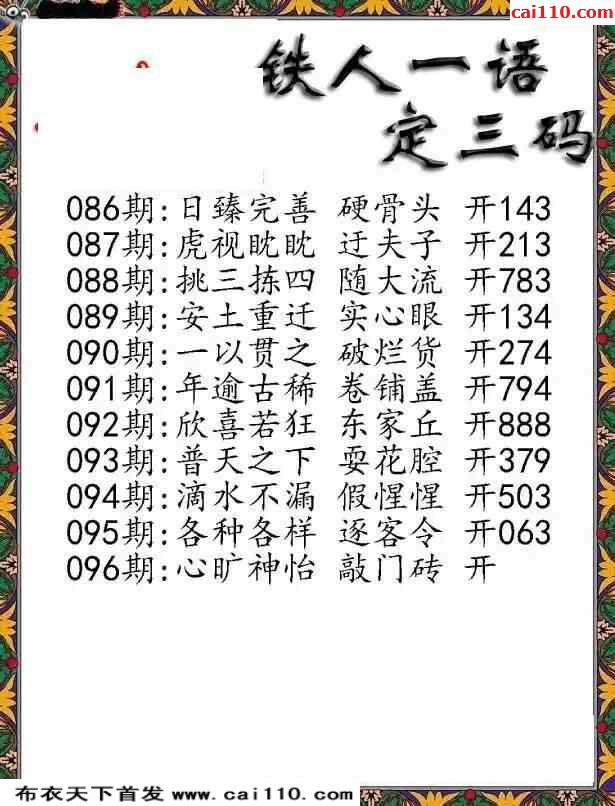 cai110.com
铁人一语
定三码
086期:日臻完善 硬骨头 开143
087期:虎视眈眈 迂夫子 开213
088期:挑三拣四 随大流 开783
089期:安土重迁 实心眼 开134
090期:一以贯之 破烂货 开274
091期:年逾古稀 卷铺盖 开794
092期:欣喜若狂 东家丘 开888
093期:普天之下 耍花腔 开379
094期:滴水不漏 假惺惺 开503
095期:各种各样 逐客令 开063
096期:心旷神怡 敲门砖 开
布衣天下首发 www.cai110.com